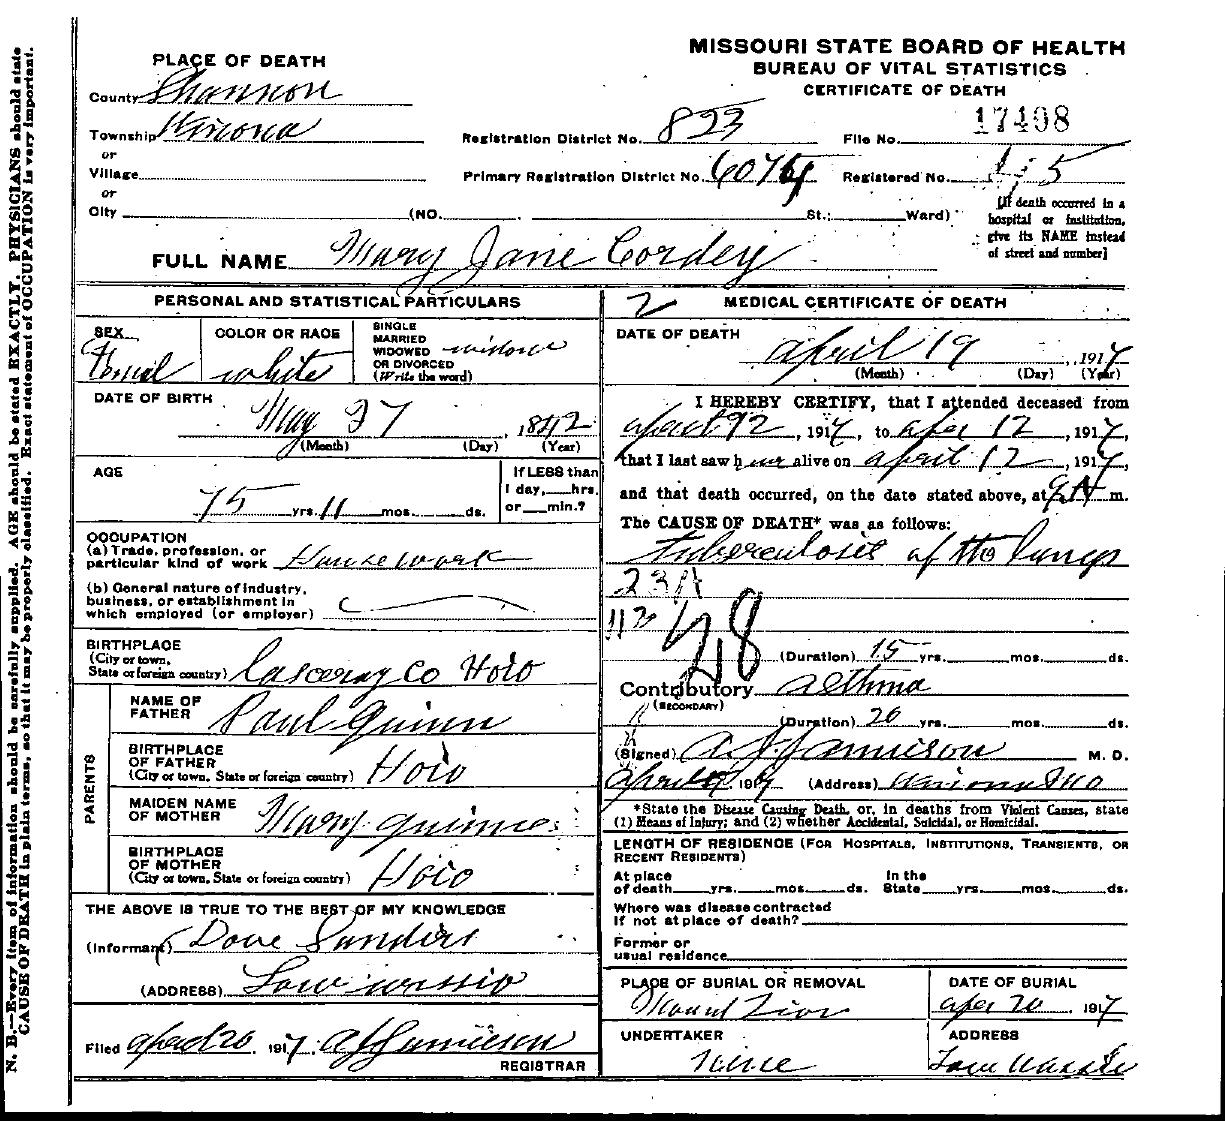 MISSOURI STATE BOARD OF HEALTH
BUREAU OF VITAL STATISTICS
CERTIFICATE OF DEATH
PLACE OF DEATH
County Shannon
Township Winona
or
Village
or
City (NO. St.; Ward)
Registration District No. 823
File No. 17498
Primary Registration District No. 6074
Registered No. 5
[If death occurred in a
hospital or institution,
give its NAME instead
of street and number]
FULL NAME Mary Jane Cordey
PERSONAL AND STATISTICAL PARTICULARS
SEX
Femal
COLOR OR RACE
white
SINGLE
MARRIED
WIDOWED
OR DIVORCED
(Write the word)
widow
DATE OF BIRTH
May 27, 1842
(Month) (Day) (Year)
AGE
75 yrs. 11 mos. ds.
If LESS than
1 day, hrs.
or min.?
OCCUPATION
(a) Trade, profession, or
particular kind of work House work
(b) General nature of industry,
business, or establishment in
which employed (or employer)
BIRTHPLACE
(City or town,
State or foreign country) Co Hoio
PARENTS
NAME OF
FATHER Paul Quinn
BIRTHPLACE
OF FATHER
(City or town, State or foreign country) Hoio
MAIDEN NAME
OF MOTHER Mary
BIRTHPLACE
OF MOTHER
(City or town, State or foreign country) Hoio
THE ABOVE IS TRUE TO THE BEST OF MY KNOWLEDGE
(Informant) Dove Sanders
(ADDRESS) Low wassie
Filed April 20 1917. A J Jamieson
REGISTRAR
2 MEDICAL CERTIFICATE OF DEATH
DATE OF DEATH
April 19, 1917
(Month) (Day) (Year)
I HEREBY CERTIFY, that I attended deceased from
April 12, 1917, to Apr 12, 1917,
that I last saw her alive on April 12, 1917,
and that death occurred, on the date stated above, at 9 A m.
The CAUSE OF DEATH* was as follows:
Tuberculosis of the lungs
23A
113
28
(Duration) 15 yrs. mos. ds.
Contributory Asthma
(SECONDARY)
(Duration) 20 yrs. mos. ds.
(Signed) A. J. Jamieson M. D.
April 191 (Address) Winona Mo
*State the Disease Causing Death, or, in deaths from Violent Causes, state
(1) Means of Injury; and (2) whether Accidental, Suicidal, or Homicidal.
LENGTH OF RESIDENCE (FOR HOSPITALS, INSTITUTIONS, TRANSIENTS, OR
RECENT RESIDENTS)
At place
of death yrs. mos. ds.
In the
State yrs. mos. ds.
Where was disease contracted
if not at place of death?
Former or
usual residence
PLACE OF BURIAL OR REMOVAL
Mount Zion
DATE OF BURIAL
Apr 20 1917
UNDERTAKER
ADDRESS
Low Wassie
N. B.—Every item of information should be carefully supplied. AGE should be stated EXACTLY. PHYSICIANS should state
CAUSE OF DEATH in plain terms, so that it may be properly classified. Exact statement of OCCUPATION is very important.